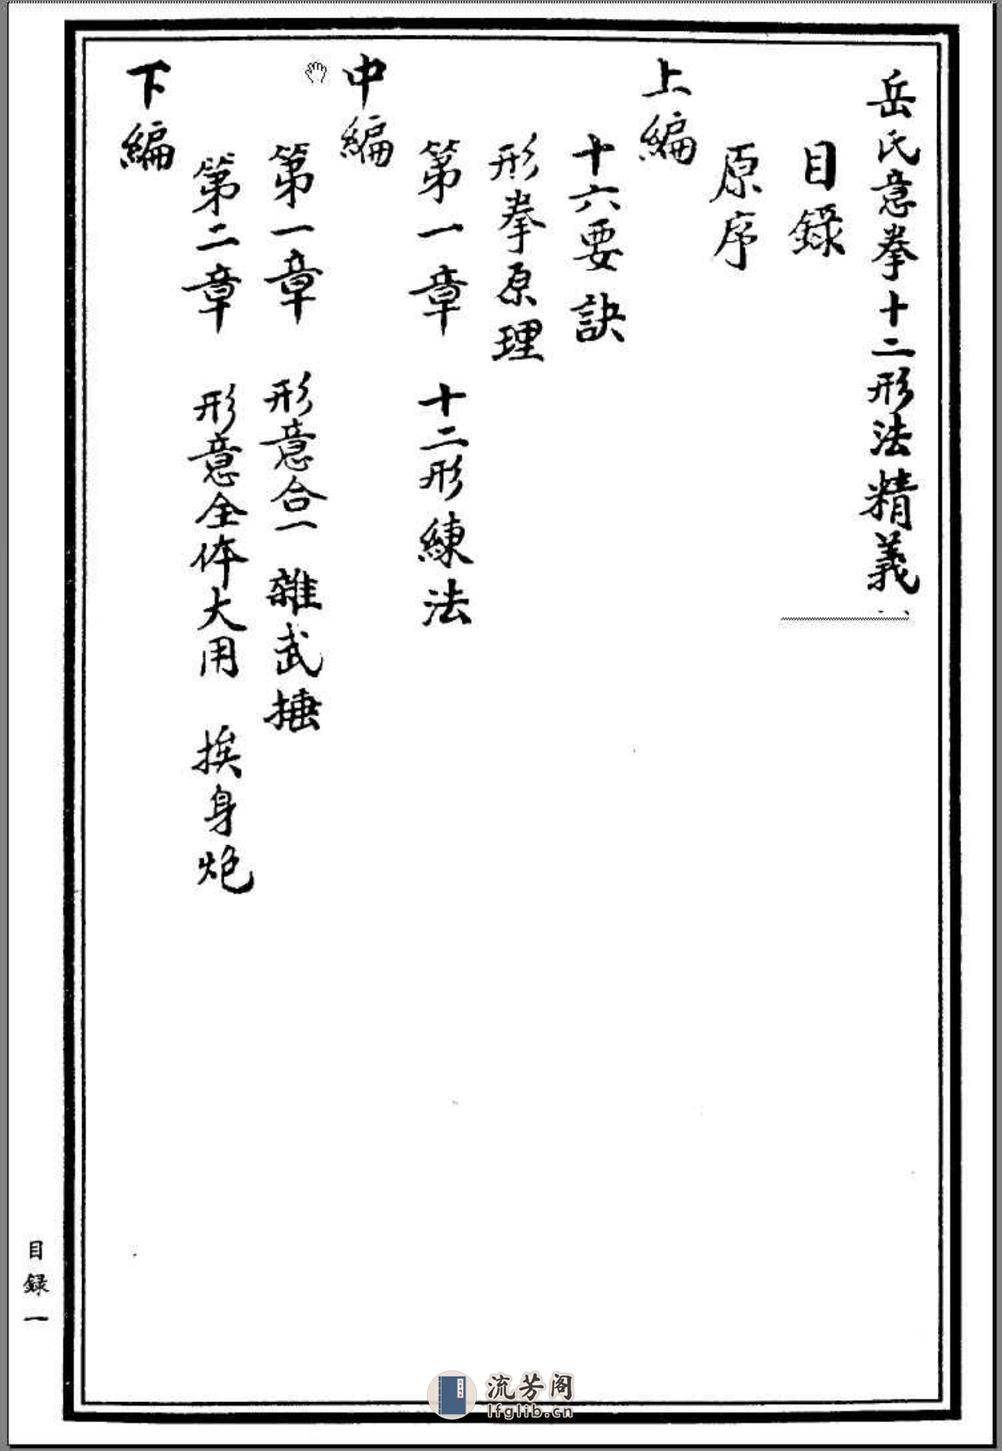 岳氏意拳十二形法精義
目錄
原序
上編
十六要訣
形拳原理
第一章 十二形練法
中編
第一章 形意合一 雜武捶
第二章 形意全体大用 挨身炮
下編
目録一
流芳阁
lfglib.cn